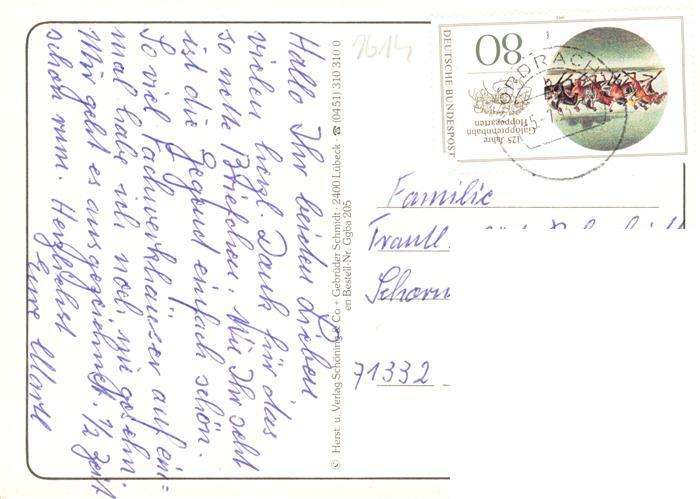 Hallo Ihr beiden Lieben
vielen herzl. Dank für das
so nette Briefchen. Wie Ihr seht
ist die Gegend einfach schön.
So viel Fachwerkhäuser auf ein=
mal habe ich noch nie gesehn.
Mir geht es ausgezeichnet. 1/2 Zeit
schon rum. Herzlichst
Eure
© Herst. u. Verlag Schöning & Co + Gebrüder Schmidt · 2400 Lübeck · ☎ (0451) 310 310 0
en Bestell-Nr. Ggba 205
DEUTSCHE BUNDESPOST
80
125 Jahre
Galopprennbahn
Hoppegarten
Familie
Trautl.
71332